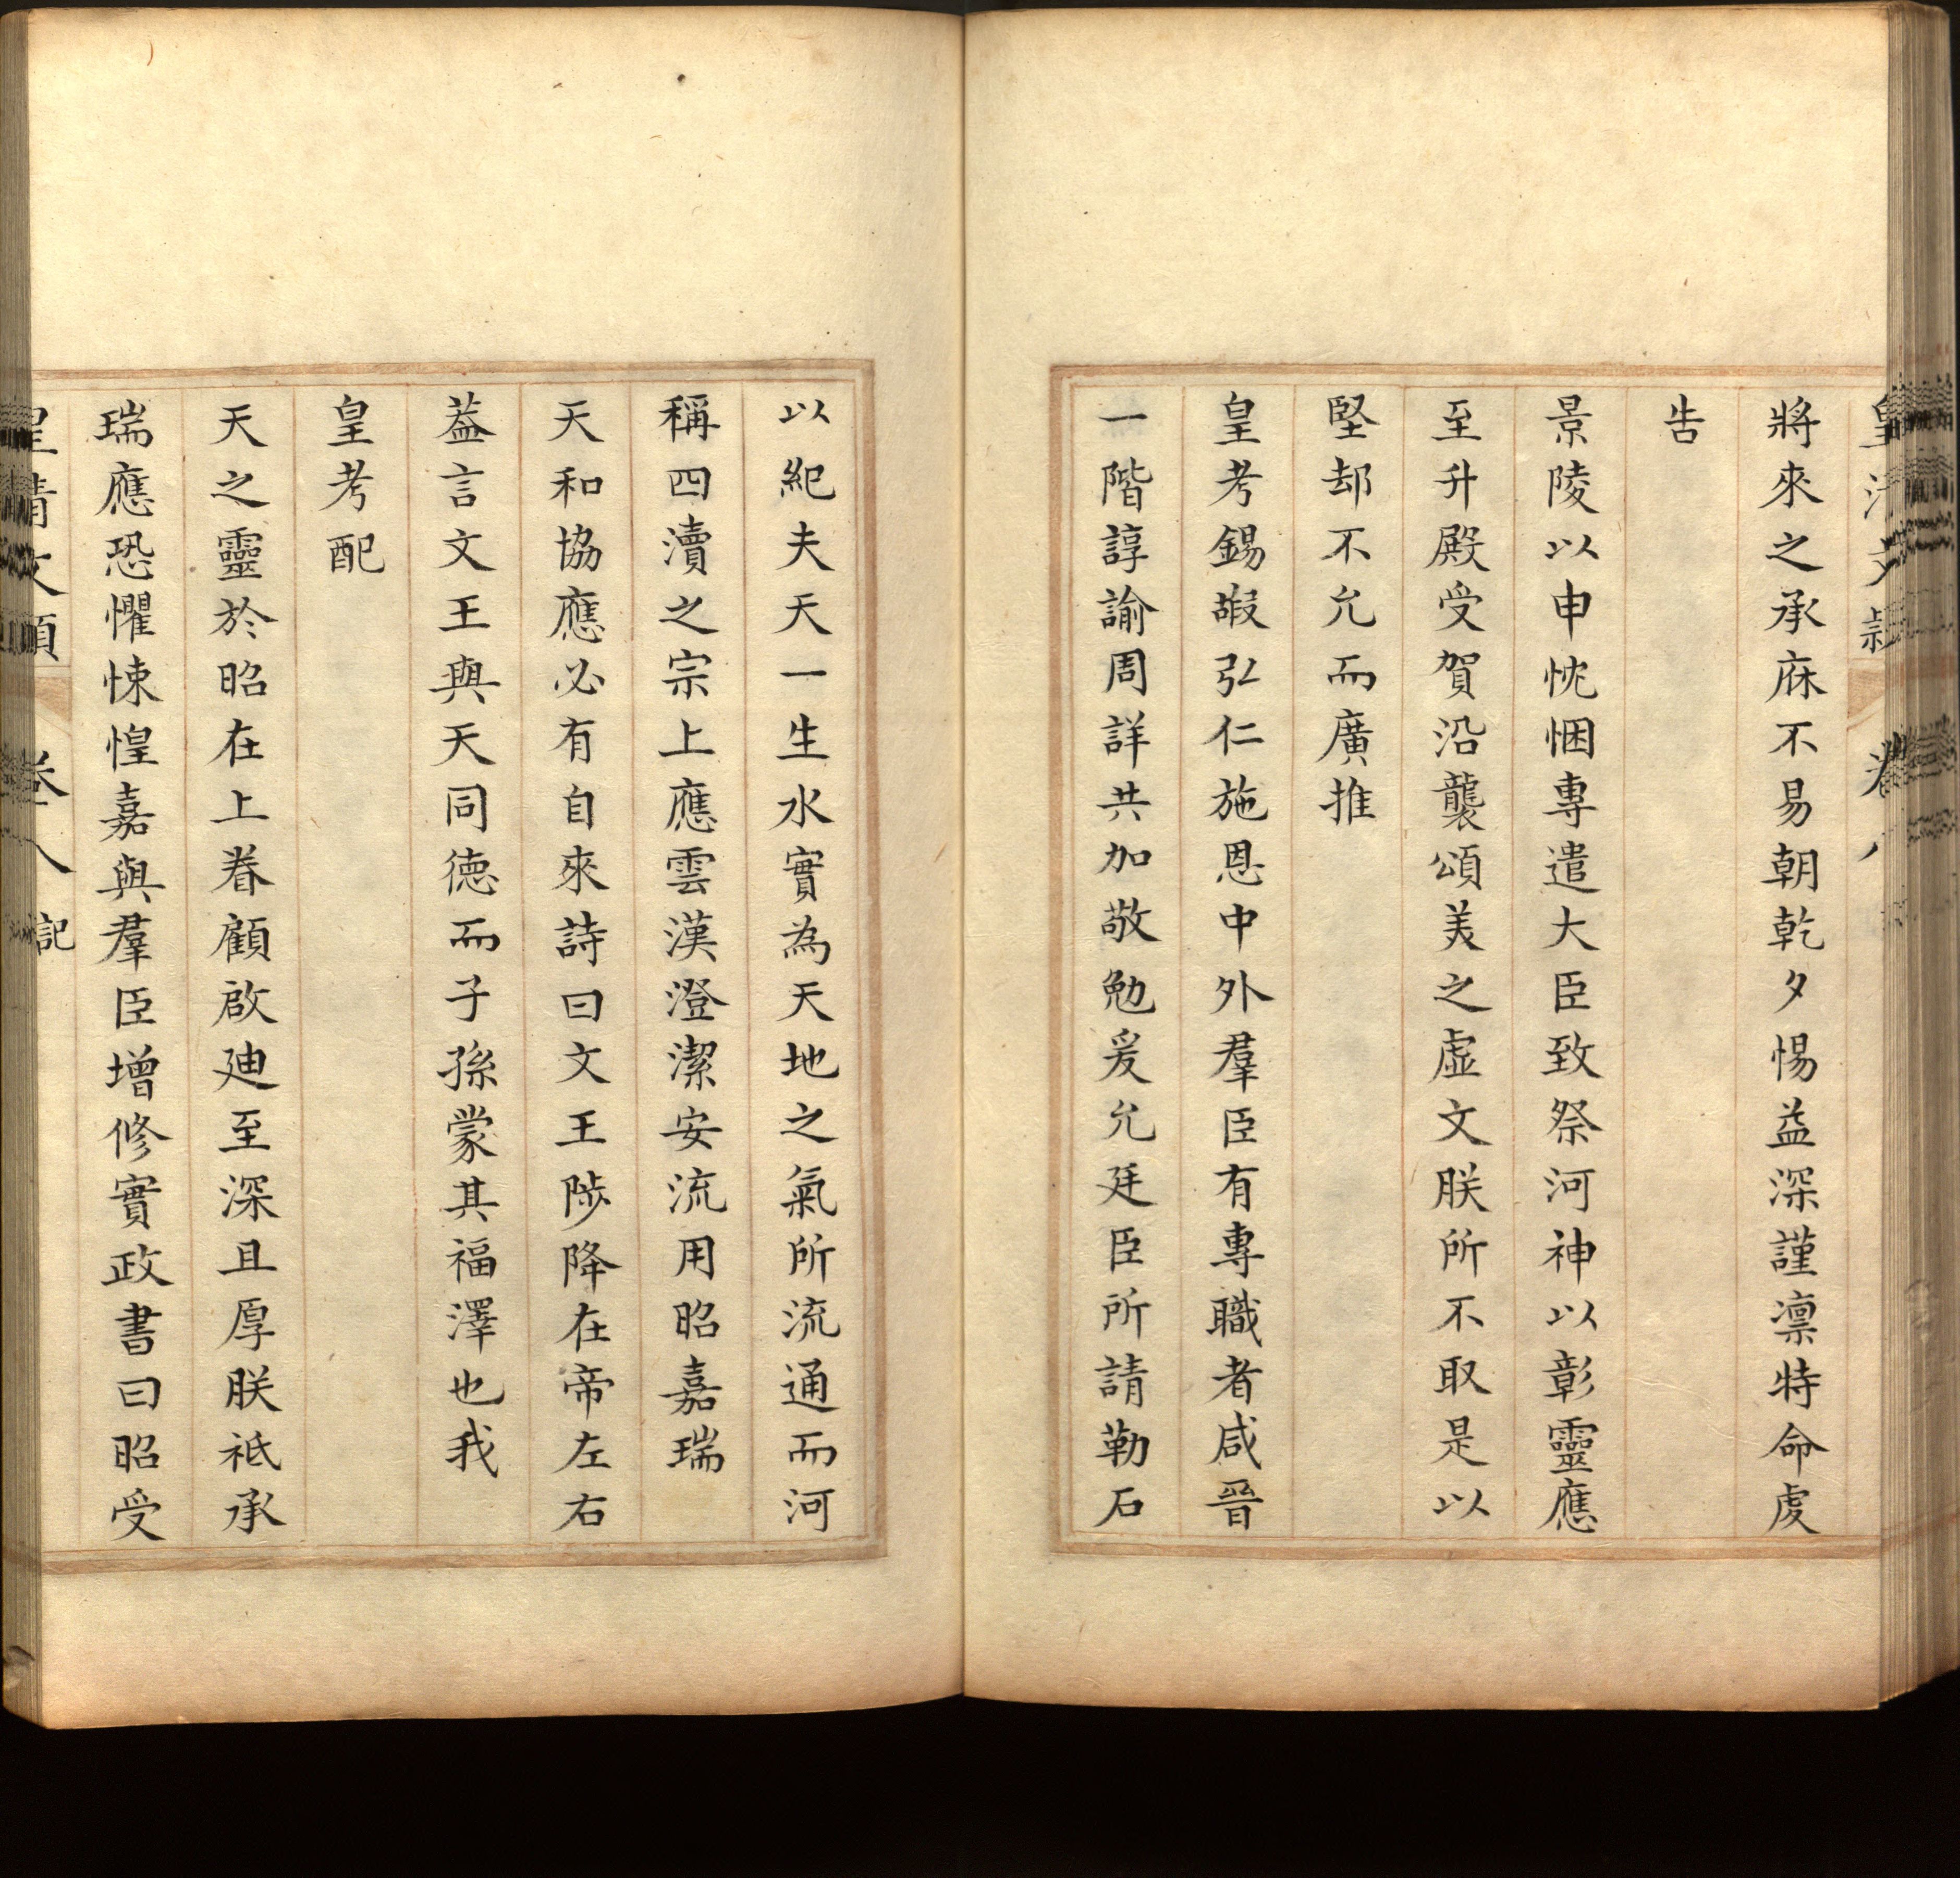 將來之承庥不易朝乾夕惕益深謹凛特命虔
告
景陵以申忱悃專遣大臣致祭河神以彰靈應
至升殿受賀沿襲頌美之虛文朕所不取是以
堅却不允而廣推
皇考錫嘏弘仁施恩中外羣臣有專職者咸晉
一階諄諭周詳共加敬勉爰允廷臣所請勒石
以紀夫天一生水實為天地之氣所流通而河
稱四瀆之宗上應雲漢澄潔安流用昭嘉瑞
天和協應必有自來詩曰文王陟降在帝左右
葢言文王與天同德而子孫蒙其福澤也我
皇考配
天之靈於昭在上眷顧啟廸至深且厚朕祗承
瑞應恐懼悚惶嘉與羣臣增修實政書曰昭受
皇清文穎 卷八 記